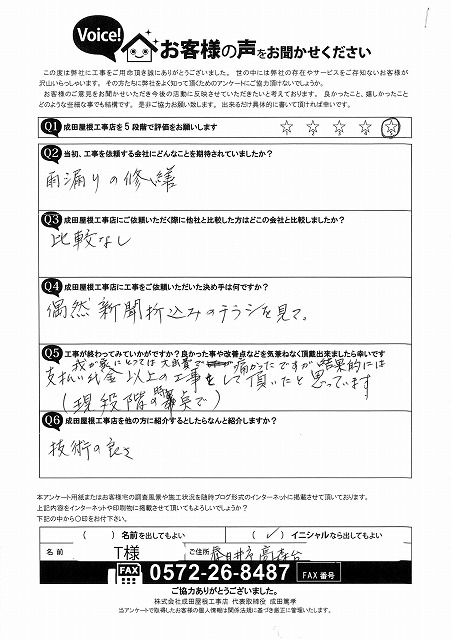 Voice! お客様の声をお聞かせください
この度は弊社に工事をご用命頂き誠にありがとうございました。世の中には弊社の存在やサービスをご存知ないお客様が
沢山いらっしゃいます。その方たちに弊社をよく知って頂くためのアンケートにご協力頂けないでしょうか。
お客様のご意見をお聞かせいただき今後の活動に反映させていただきたいと考えております。良かったこと、嬉しかったこと
どのような些細な事でも結構です。是非ご協力お願い致します。出来るだけ具体的に書いて頂ければ幸いです。
Q1 成田屋根工事店を5段階で評価をお願いします ☆ ☆ ☆ ☆ ☆
Q2 当初、工事を依頼する会社にどんなことを期待されていましたか?
雨漏りの修繕
Q3 成田屋根工事店にご依頼いただく際に他社と比較した方はどこの会社と比較しましたか?
比較なし
Q4 成田屋根工事店に工事をご依頼いただいた決め手は何ですか?
偶然新聞折込みのチラシを見て。
Q5 工事が終わってみていかがですか?良かった事や改善点などを気兼ねなく頂戴出来ましたら幸いです
我が家にとっては大出費で 痛かったですが結果的には
支払い代金以上の工事をして頂いたと思っています
(現段階の時点で)
Q6 成田屋根工事店を他の方に紹介するとしたらなんと紹介しますか?
技術の良さ
本アンケート用紙またはお客様宅の調査風景や施工状況を随時ブログ形式のインターネットに掲載させて頂いております。
上記内容をインターネットや印刷物に掲載させて頂いてもよろしいでしょうか?
下記の中から〇印をお付下さい。
( ) 名前を出してもよい ( ✓ ) イニシャルなら出してもよい
名前 T様 ご住所 春日井市高森台
FAX 0572-26-8487 FAX番号
ご協力ありがとうございました。
株式会社成田屋根工事店 代表取締役 成田篤孝
当アンケートで取得したお客様の個人情報は関係法規に基づき厳正に管理いたします。